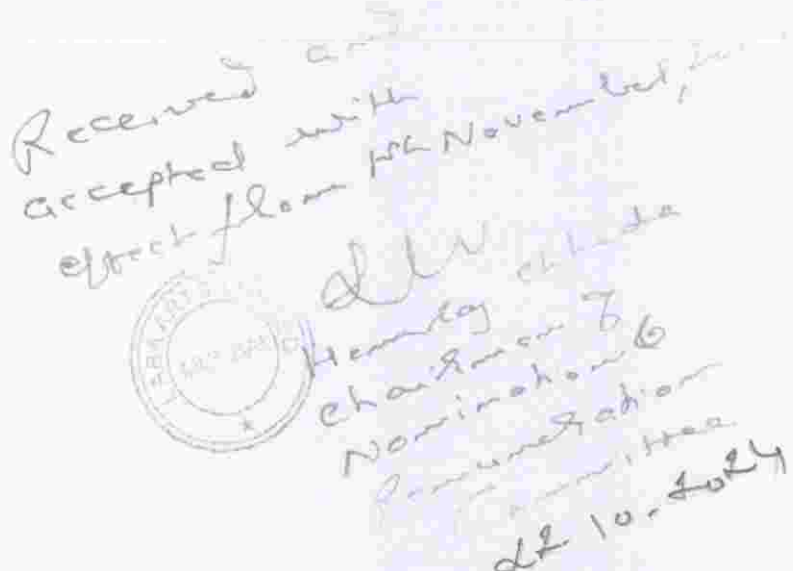 Received and
accepted with
effect from 1st November,
Hemraj Chheda
Chairman of
Nomination &
Remuneration
Committee
22.10.2024